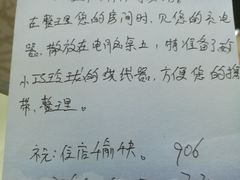 在整理您的房间时,见您的充电
器散放在电脑桌上,特准备了
小巧玲珑的绕线器,方便您的携
带、整理。
祝:住店愉快。 906